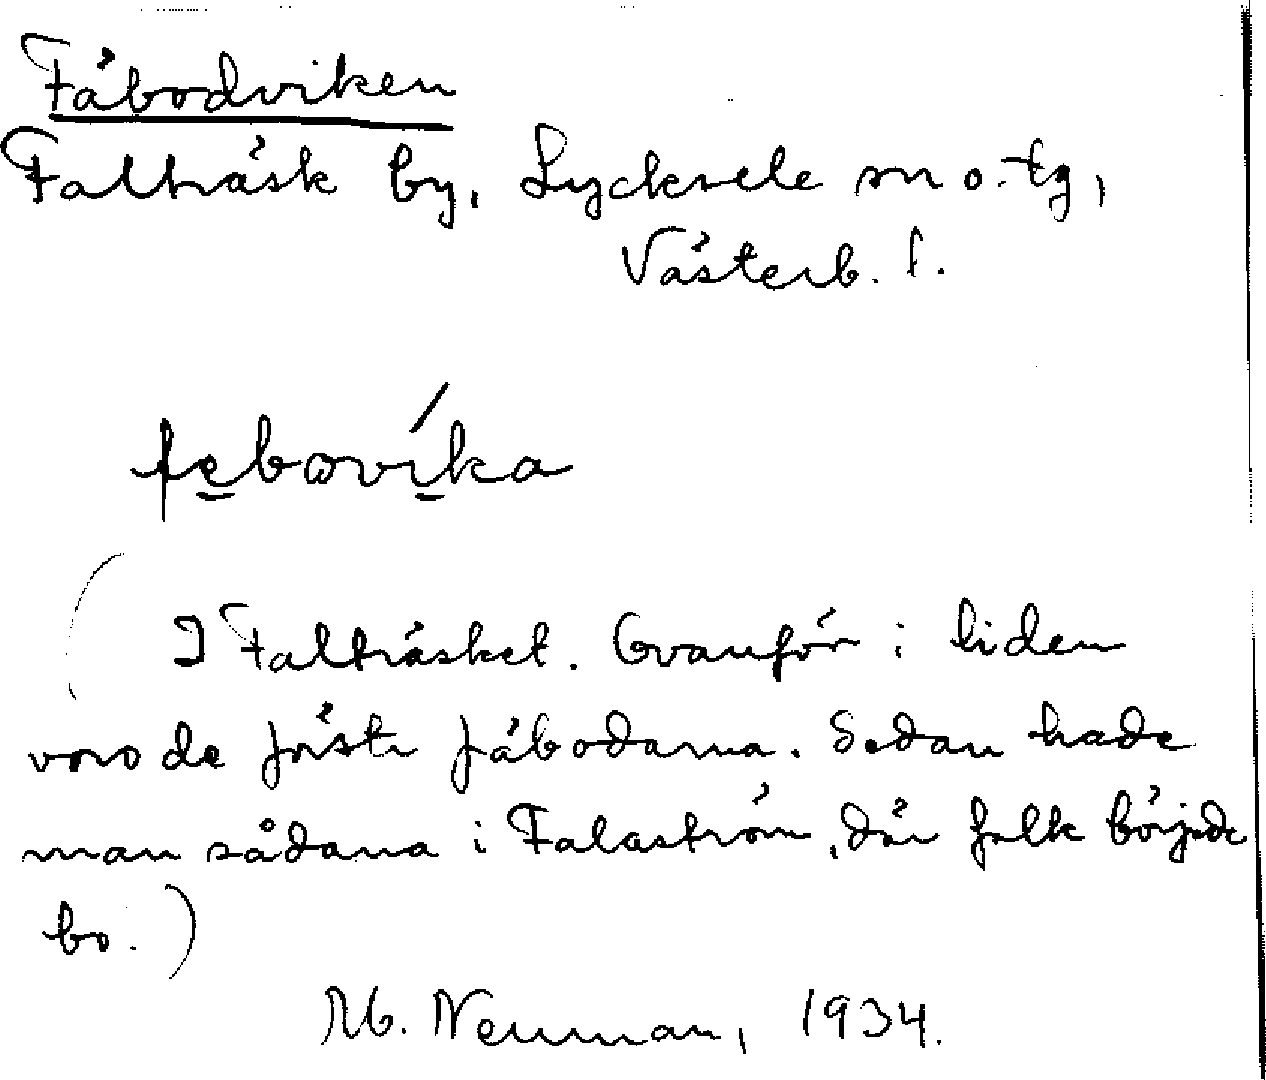 Fäbodviken
Falträsk by, Lycksele sn o. tg,
Västerb. l.
fe̱bɷvi̱ka
(I Falträsket. Ovanför i liden
voro de första fäbodarna. Sedan hade
man sådana i Falaström, där folk började
bo.)
M. Neuman, 1934.